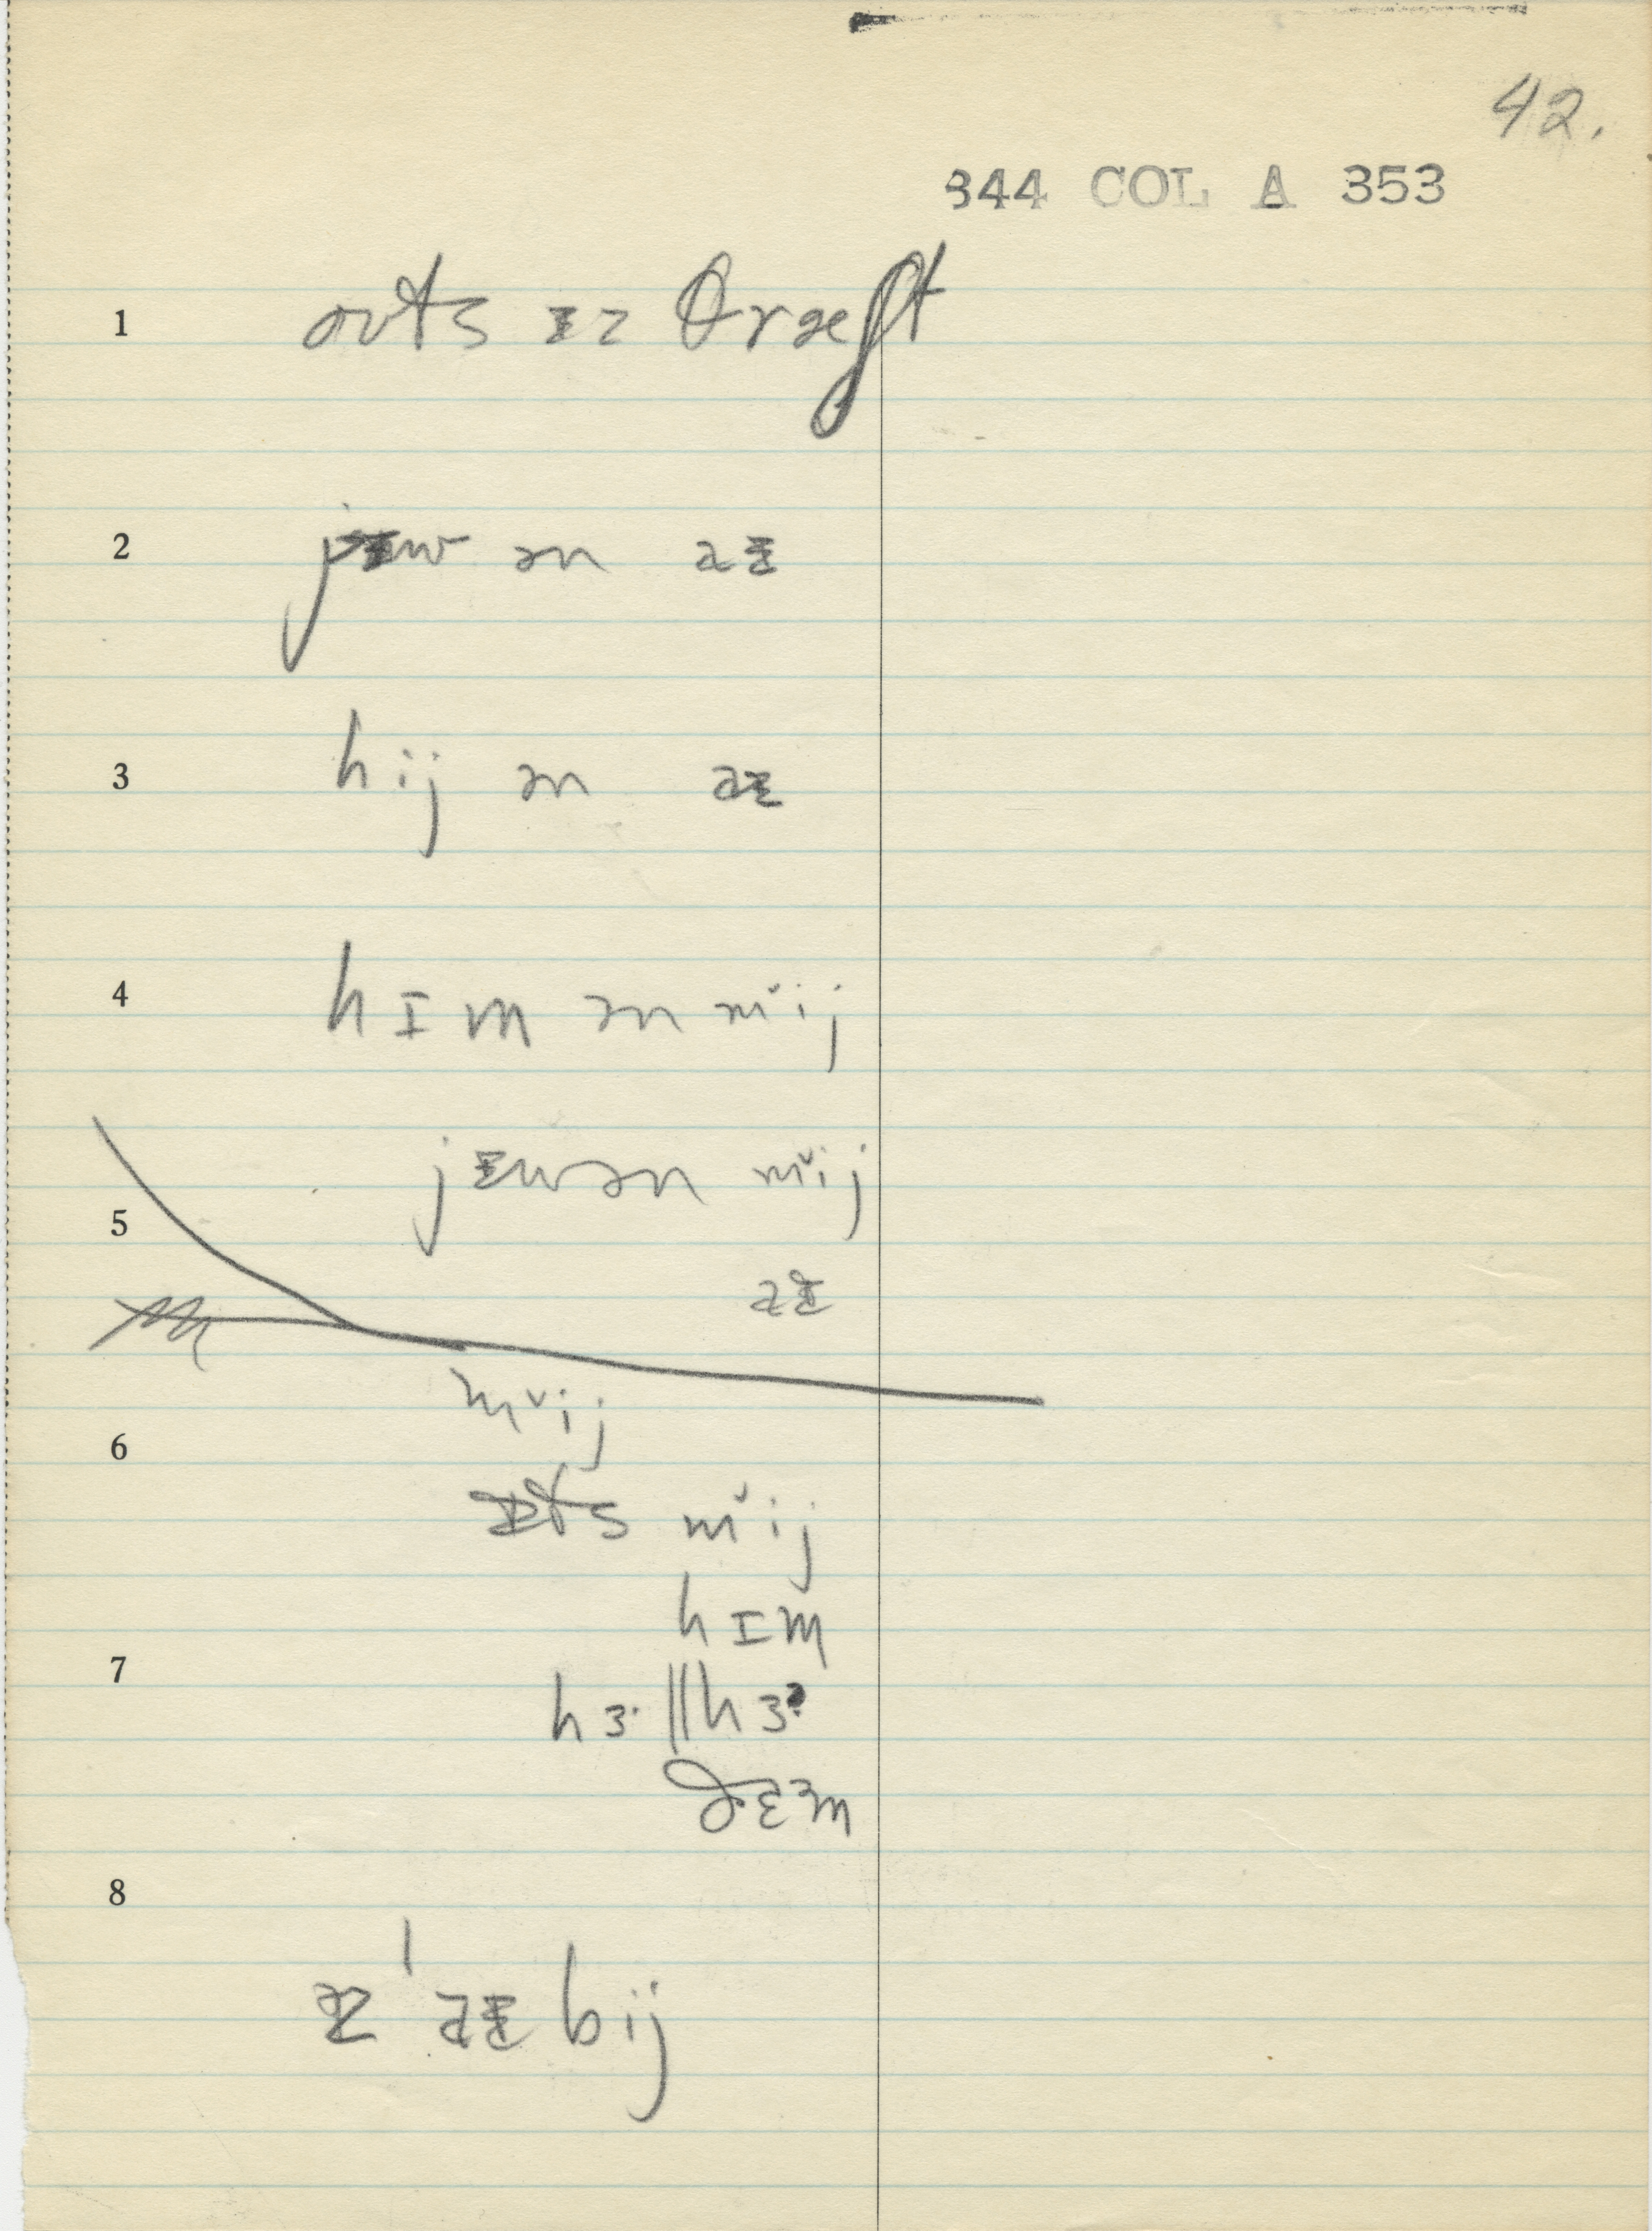 42.
344 COL A 353
1 oʊts ɪz θræʃt
2 jɪw ən aɪ
3 hij ən aɪ
4 hɪm ən mˇij
5 jɪwən mˇij
aɪ
6 mˇij
ɪts mˇij
hɪm
7 hɜ· ‖hɜ
ðɛm
8
ɪz ˈaɪ bij